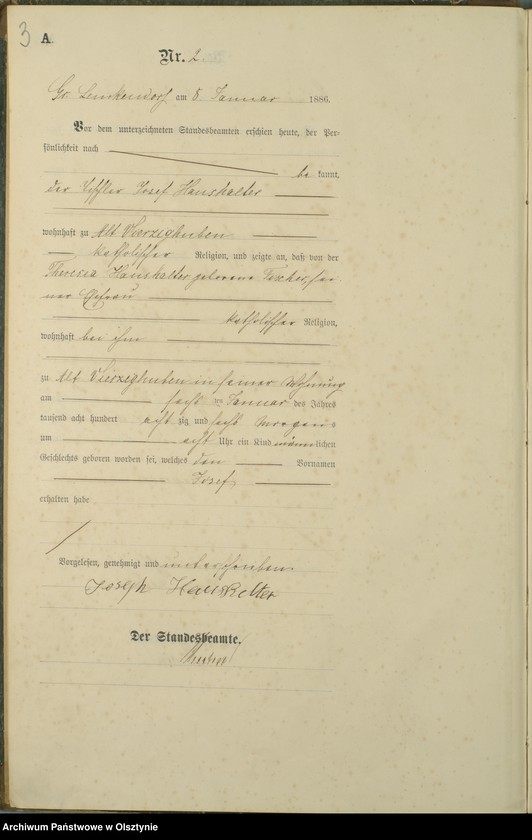 3
A.
Nr. 2.
Gr. Lemkendorf am 8. Januar 1886.
Vor dem unterzeichneten Standesbeamten erschien heute, der Per-
sönlichkeit nach
be kannt,
der Josef Haushalter
wohnhaft zu Alt Vierzighuben
katholischer Religion, und zeigte an, daß von der
Theresia Haushalter geborene Fischer, sei
ner Ehefrau
katholischer Religion,
wohnhaft bei ihm
zu Alt Vierzighuben in seiner Wohnung
am sechs ten Januar des Jahres
tausend acht hundert acht zig und sechs Morgens
um acht Uhr ein Kind männlichen
Geschlechts geboren worden sei, welches den Vornamen
Josef
erhalten habe
Vorgelesen, genehmigt und unterschrieben
Joseph Haushalter
Der Standesbeamte.
Archiwum Państwowe w Olsztynie